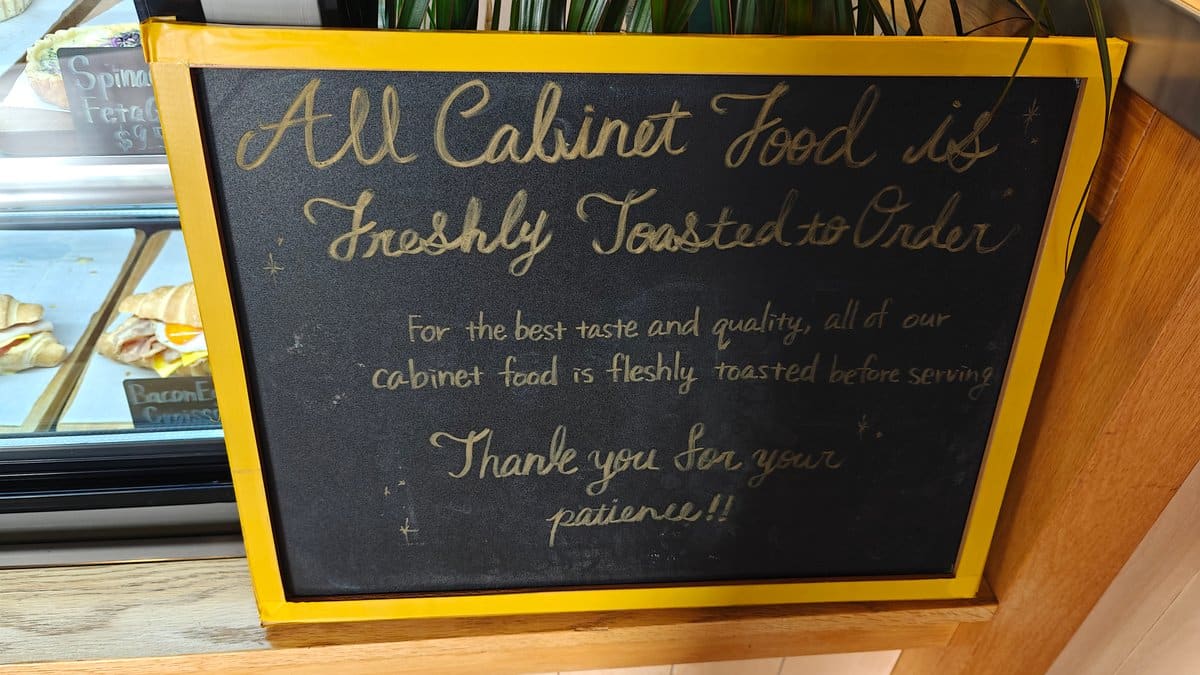 All Cabinet Food is
Freshly Toasted to Order
For the best taste and quality, all of our
cabinet food is fleshly toasted before serving
Thank you for your
patience!!
Feta
Bacon